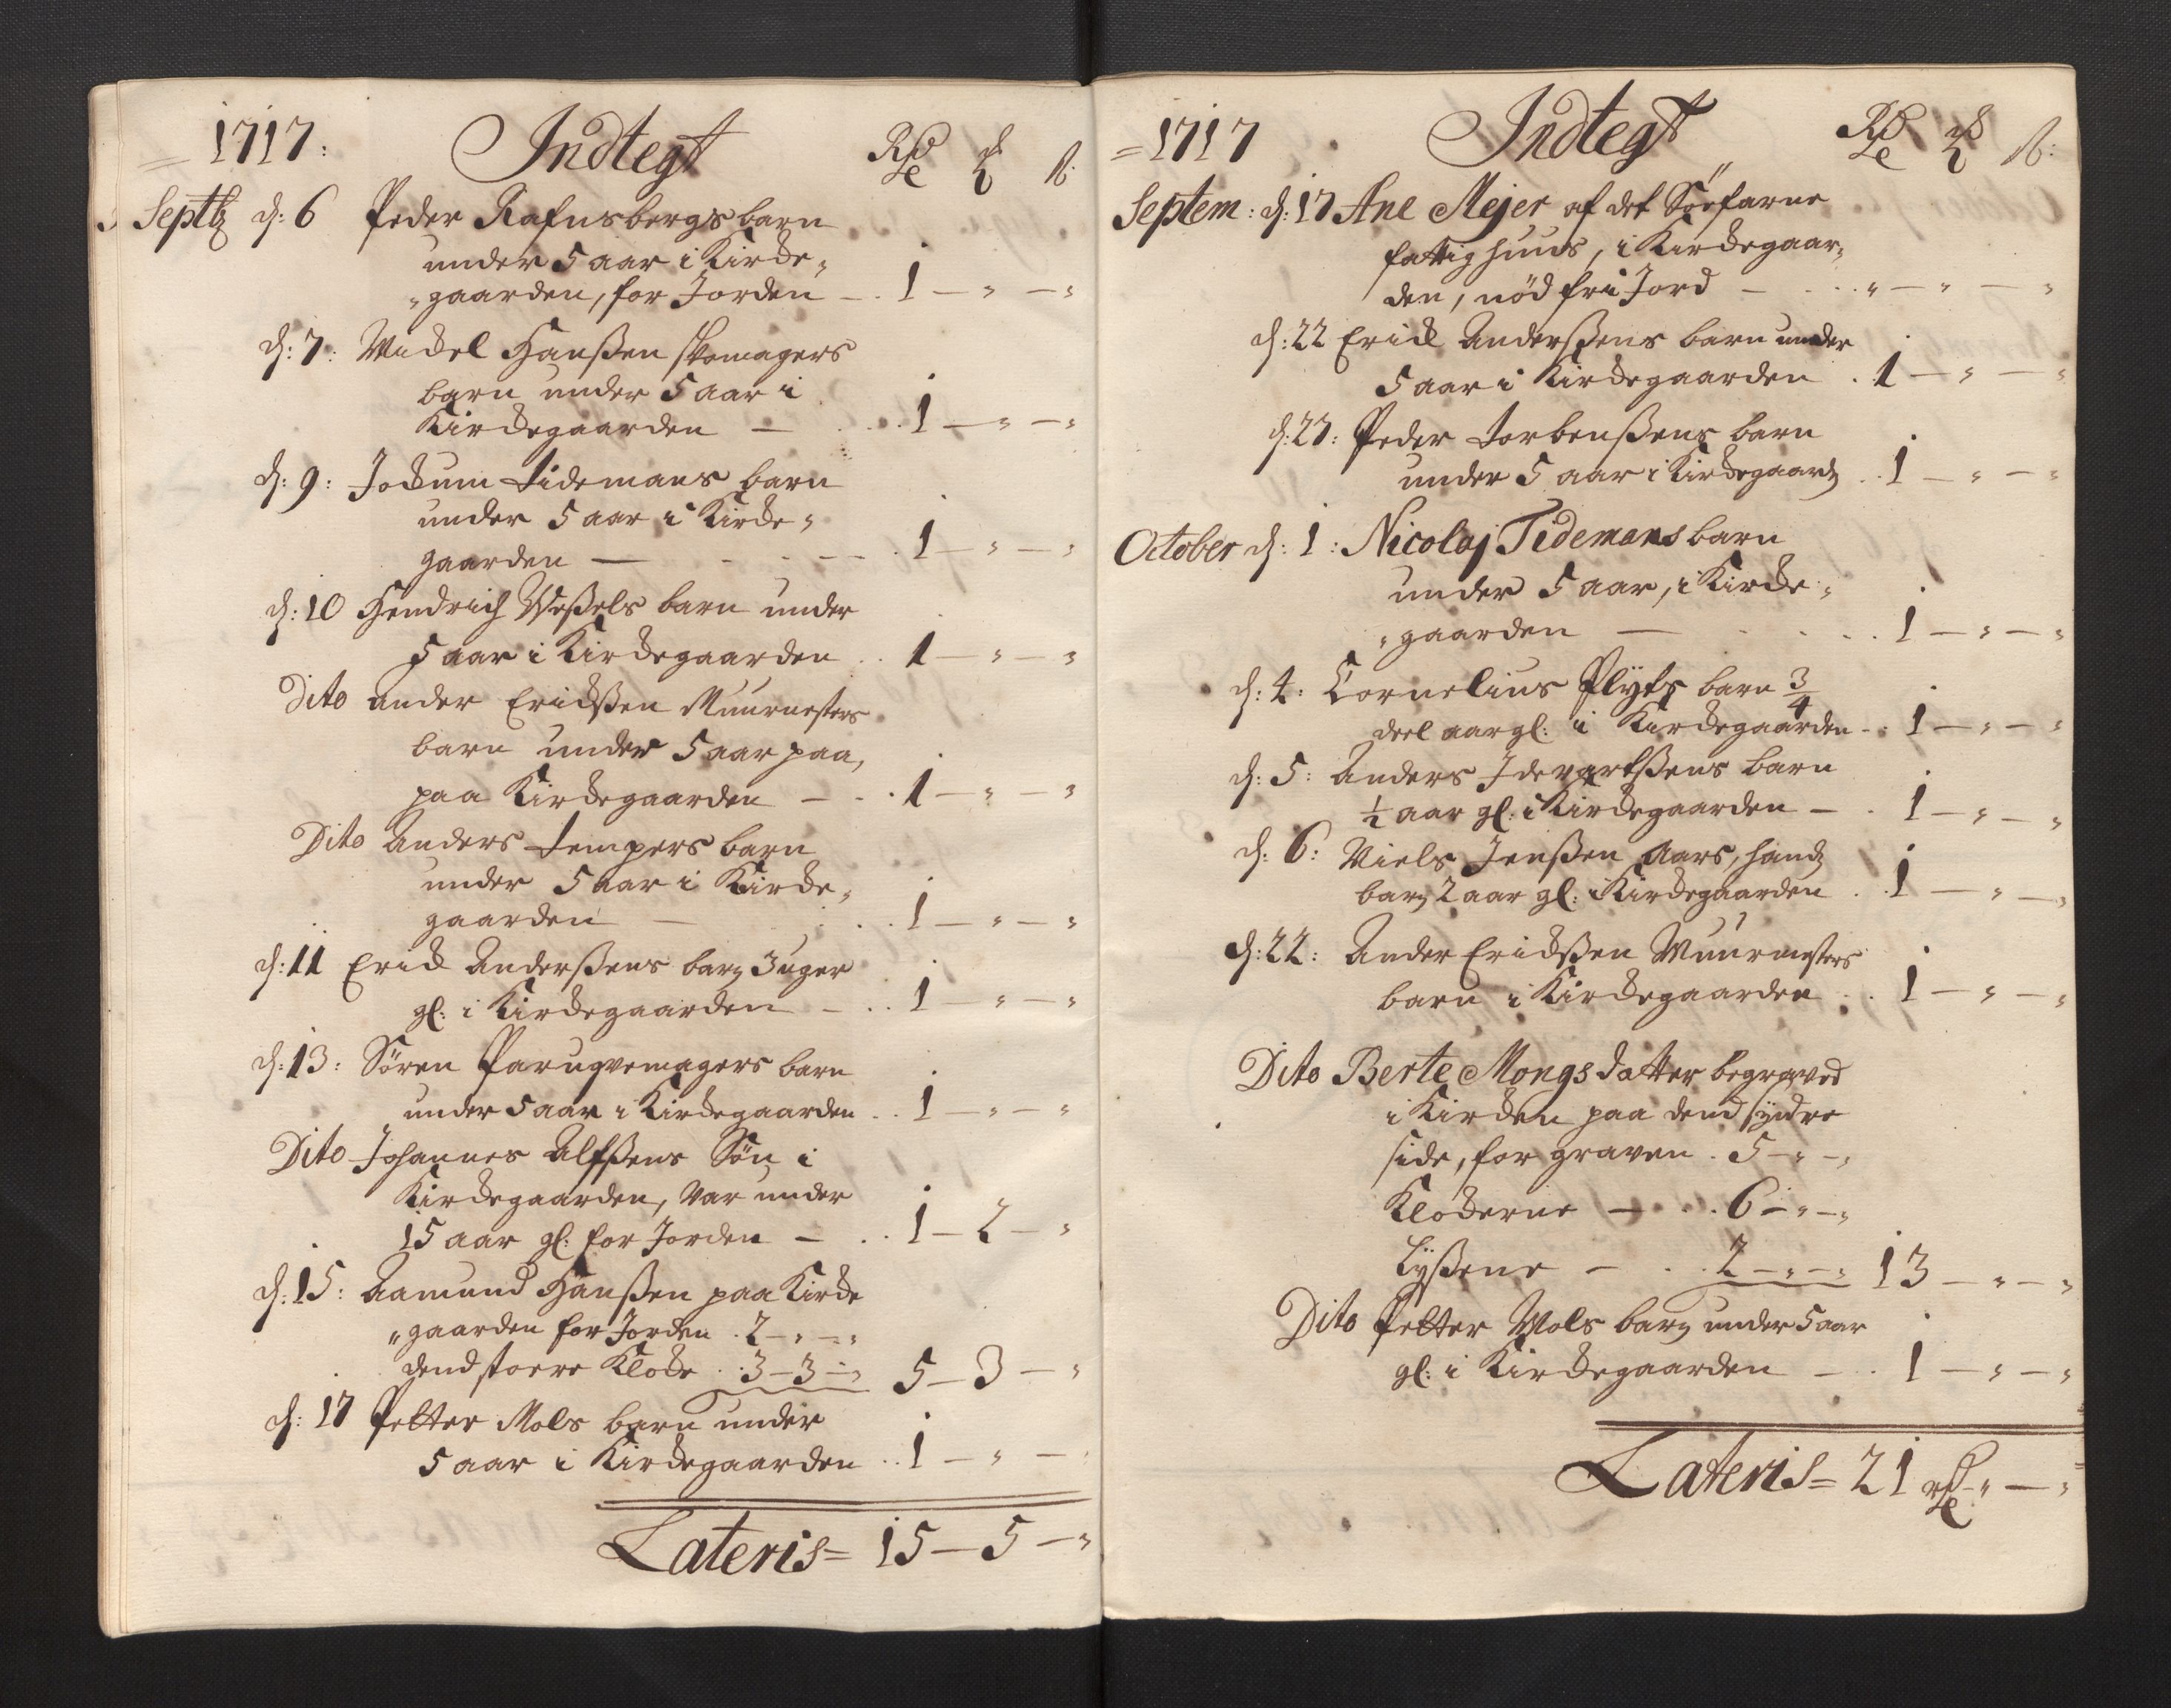 1717: Indtegt Rdr ꝸ ß:
Septb d: 6 Peder Rafnsbergs barn
under 5 aar i Kircke„
„gaarden, for Jorden - . 1 — „ — „
d: 7: Michel Hanßen skomagers
barn under 5 aar i
Kirckegaarden — . . . 1 — „ — „
d: 9: Jochum Tidemans barn
under 5 aar i Kircke„
gaarden — - . - — . 1 — „ — „
d: 10 Hendrich Weßels barn under
5 aar i Kirckegaarden . . 1 — „ — „
Dito Ander Erichßen Muurmesters
barn under 5 aar paa,
paa Kirckegaarden — . . 1 — „ — „
Dito Anders Tempers barn
under 5 aar i Kircke„
gaarden — . . . 1 — „ — „
d: 11 Erich Anderßens barn 3 uger
gl: i Kirckegaarden — . . 1 — „ — „
d: 13: Sören Paruqvemagers barn
under 5 aar i Kirckegaarden . . 1 — „ — „
Dito Johannes Alfßens Sön i
Kirckegaarden, var under
15 aar gl: for Jorden — . . 1 — 2 — „
d: 15: Aamund Hanßen paa Kircke
„gaarden for Jorden . 2 — „ — „
dend stoere Klocke . . 3 — 3 — „ 5 — 3 — „
d: 17 Petter Mols barn under
5 aar i Kirckegaarden . . 1 — „ —
Lateris = 15 — 5 — „
= 1717 Indtegt Rdr ꝸ ß:
Septem: d: 17 Ane Mejer af det Söefarne
fattighuus, i Kirckegaar„
den, nöd fri Jord — . . . „ — „ — „
d: 22 Erich Anderßens barn under
5 aar i Kirckegaarden . 1 — „ — „
d: 27: Peder Torbenßens barn
under 5 aar i Kirckegaard . . 1 — „ — „
October d: 1: Nicolaj Tidemans barn
under 5 aar, i Kircke„
„gaarden — . . . . 1 — „ — „
d: 4: Cornelius Plyts barn 3/4
deel aar gl: i Kirckegaarden - . 1 — „ — „
d: 5: Anders barn
1/2 aar gl: i Kirckegaarden — . 1 — „ — „
d: 6: Niels Jenßen Aars, hands
barn 2 aar gl: i Kirckegaarden . . 1 — „ — „
d: 22: Ander Erichßen Muurmesters
barn i Kirckegaarden . . 1 — „ — „
Dito Berte Mongs datter begraved
i Kircken paa dend syndre
side, for graven . 5 — „ — „
Klockerne — . . 6 — „ — „
Lyßene — . . 2 — „ — „ 13 — „ — „
Dito Petter Mols barn under 5 aar
gl: i Kirckegaarden — . 1 — „ — „
Lateris = 21 rdr — „ — „